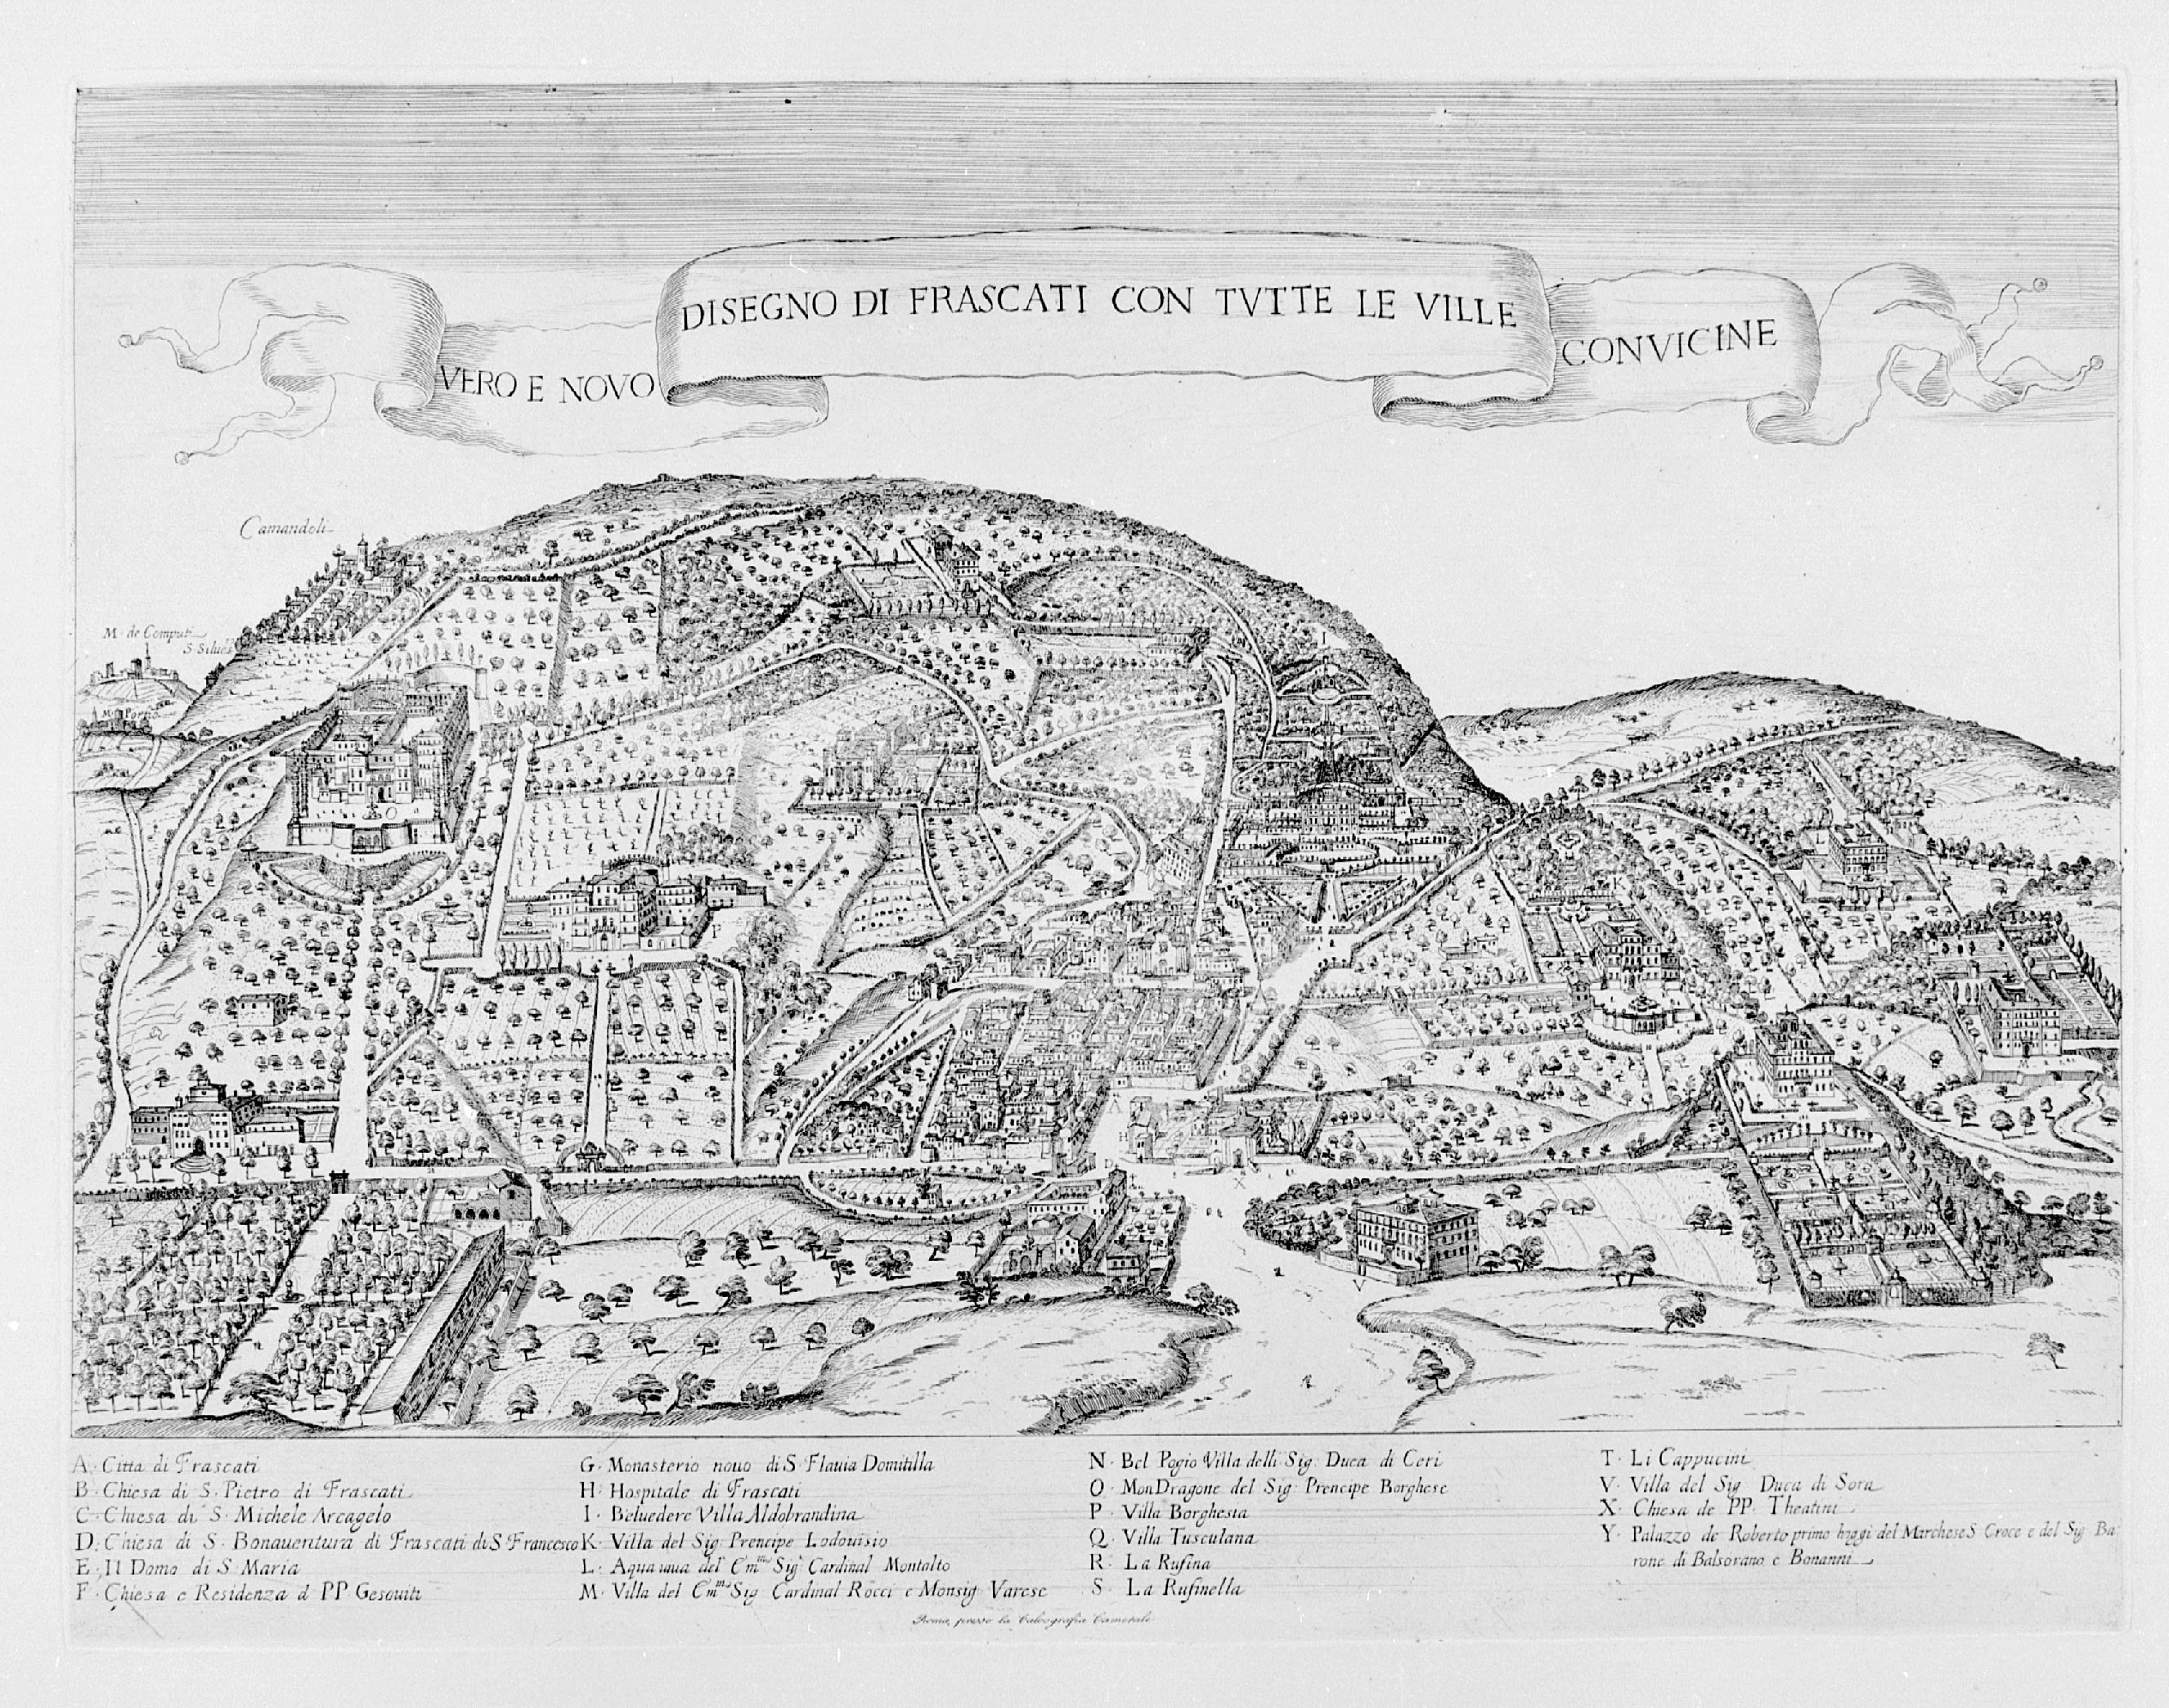 VERO E NOVO DISEGNO DI FRASCATI CON TVTTE LE VILLE CONVICINE
Camandoli
M. de Comput
S. Silues
M. Porzo
A. Citta di Frascati
B. Chiesa di S. Pietro di Frascati
C. Chiesa di S. Michele Arcagelo
D. Chiesa di S. Bonauentura di Frascati di S Francesco
E. Il Domo di S. Maria
F. Chiesa e Residenza d PP Gesouiti
G. Monasterio nouo di S. Flauia Domitilla
H. Hospitale di Frascati
I. Beluedere Villa Aldobrandina
K. Villa del Sig. Prencipe Lodouisio
L. Aquauiua del Em.mo Sig. Cardinal Montalto
M. Villa del Em.mo Sig Cardinal Rocci e Monsig. Varese
N. Bel Pogio Villa delli Sig. Duca di Ceri
O. MonDragone del Sig. Prencipe Borghese
P. Villa Borghesia
Q. Villa Tusculana
R. La Rufina
S. La Rufinella
T. Li Cappucini
V. Villa del Sig. Duca di Sora
X. Chiesa de PP. Theatini
Y. Palazzo de Roberto primo hoggi del Marchese S. Croce e del Sig Ba:
rone di Balsorano e Bonanni
Roma, presso la Calcografia Camerale